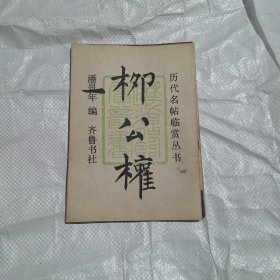 历代名帖临赏丛书
柳公權
潘年 编 齐鲁书社